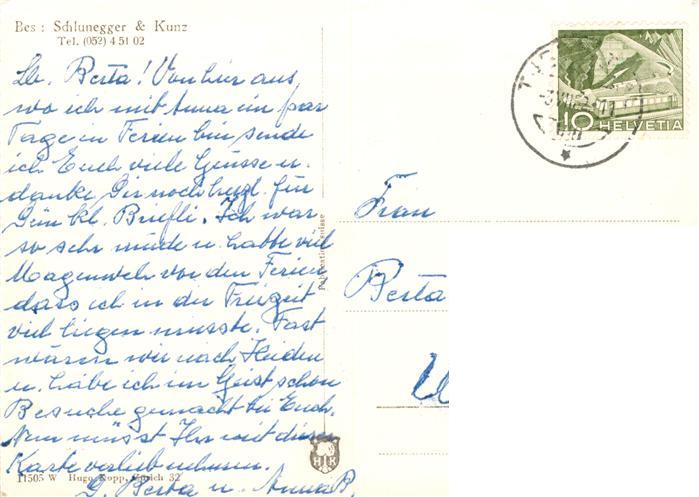 Bes: Schlunegger & Kunz
Tel. (052) 4 51 02
Lb. Berta! Von hier aus,
wo ich mit Anna ein paar
Tage in Ferien bin sende
ich Euch viele Grüsse u.
danke Dir noch herzl. für
Dein kl. Briefli. Ich war
so sehr müde u. habbe viel
Magenweh vor den Ferien
dass ich in der Freizeit
viel liegen musste. Fast
wären wir nach Heiden
u. habe ich im Geist schon
Besuche gemacht bei Euch.
Nun müsst Ihr mit dieser
Karte verlieb nehmen.
G. Berta u. Anna B.
11505 W Hugo Kopp, Zürich 32
HK
10 HELVETIA
Frau
Berta
U